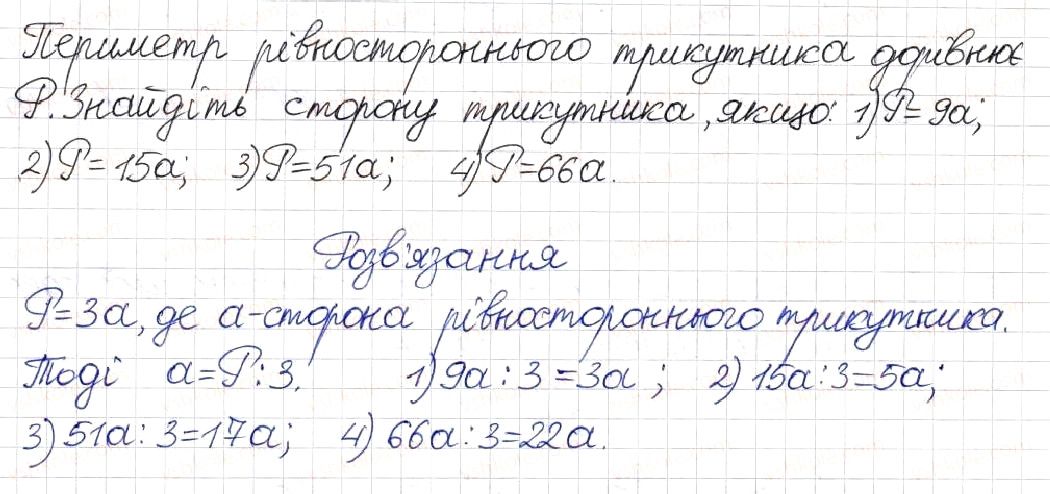 Периметр рівностороннього трикутника дорівнює
P. Знайдіть сторону трикутника, якщо: 1) P=9a;
2) P=15a; 3) P=51a; 4) P=66a.
Розв'язання
P=3a, де a-сторона рівностороннього трикутника.
Тоді a=P:3. 1) 9a:3=3a; 2) 15a:3=5a;
3) 51a:3=17a; 4) 66a:3=22a.